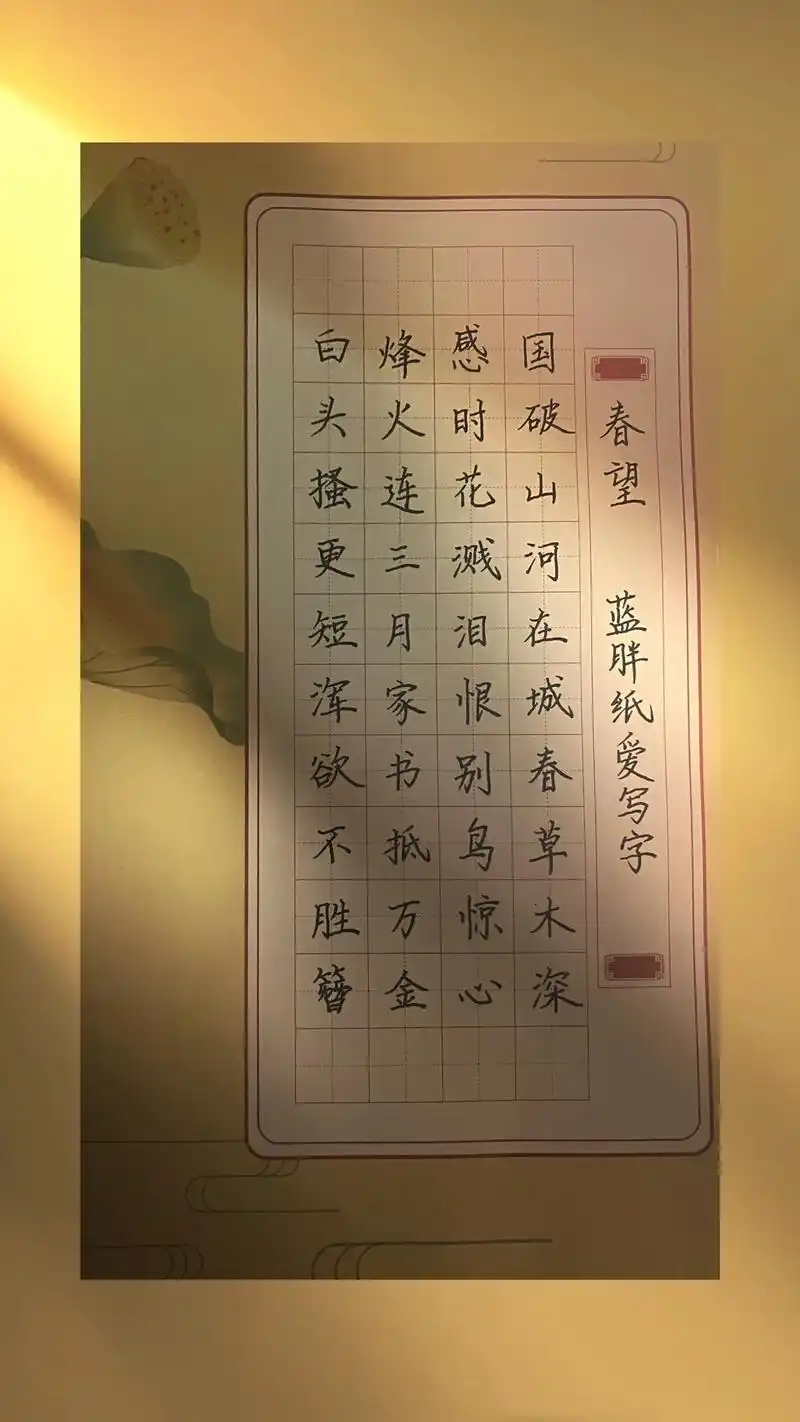 春望 蓝胖纸爱写字
国破山河在城春草木深
感时花溅泪恨别鸟惊心
烽火连三月家书抵万金
白头搔更短浑欲不胜簪